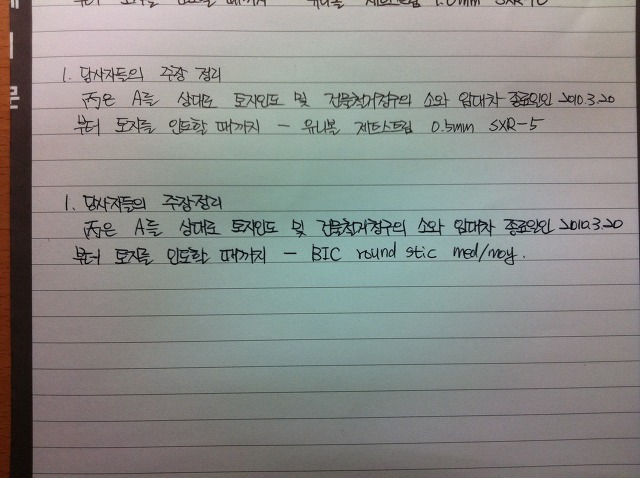 부터 토지를 인도할 때까지 - 유니볼 제트스트림 1.0mm SXR-10
1. 당사자들의 주장 정리
丙은 A를 상대로 토지인도 및 건물철거청구의 소와 임대차 종료일인 2010.3.20
부터 토지를 인도할 때까지 - 유니볼 제트스트림 0.5mm SXR-5
1. 당사자들의 주장정리
丙은 A를 상대로 토지인도 및 건물철거청구의 소와 임대차 종료일인 2010.3.20
부터 토지를 인도할 때까지 - BIC round stic med/moy.
문